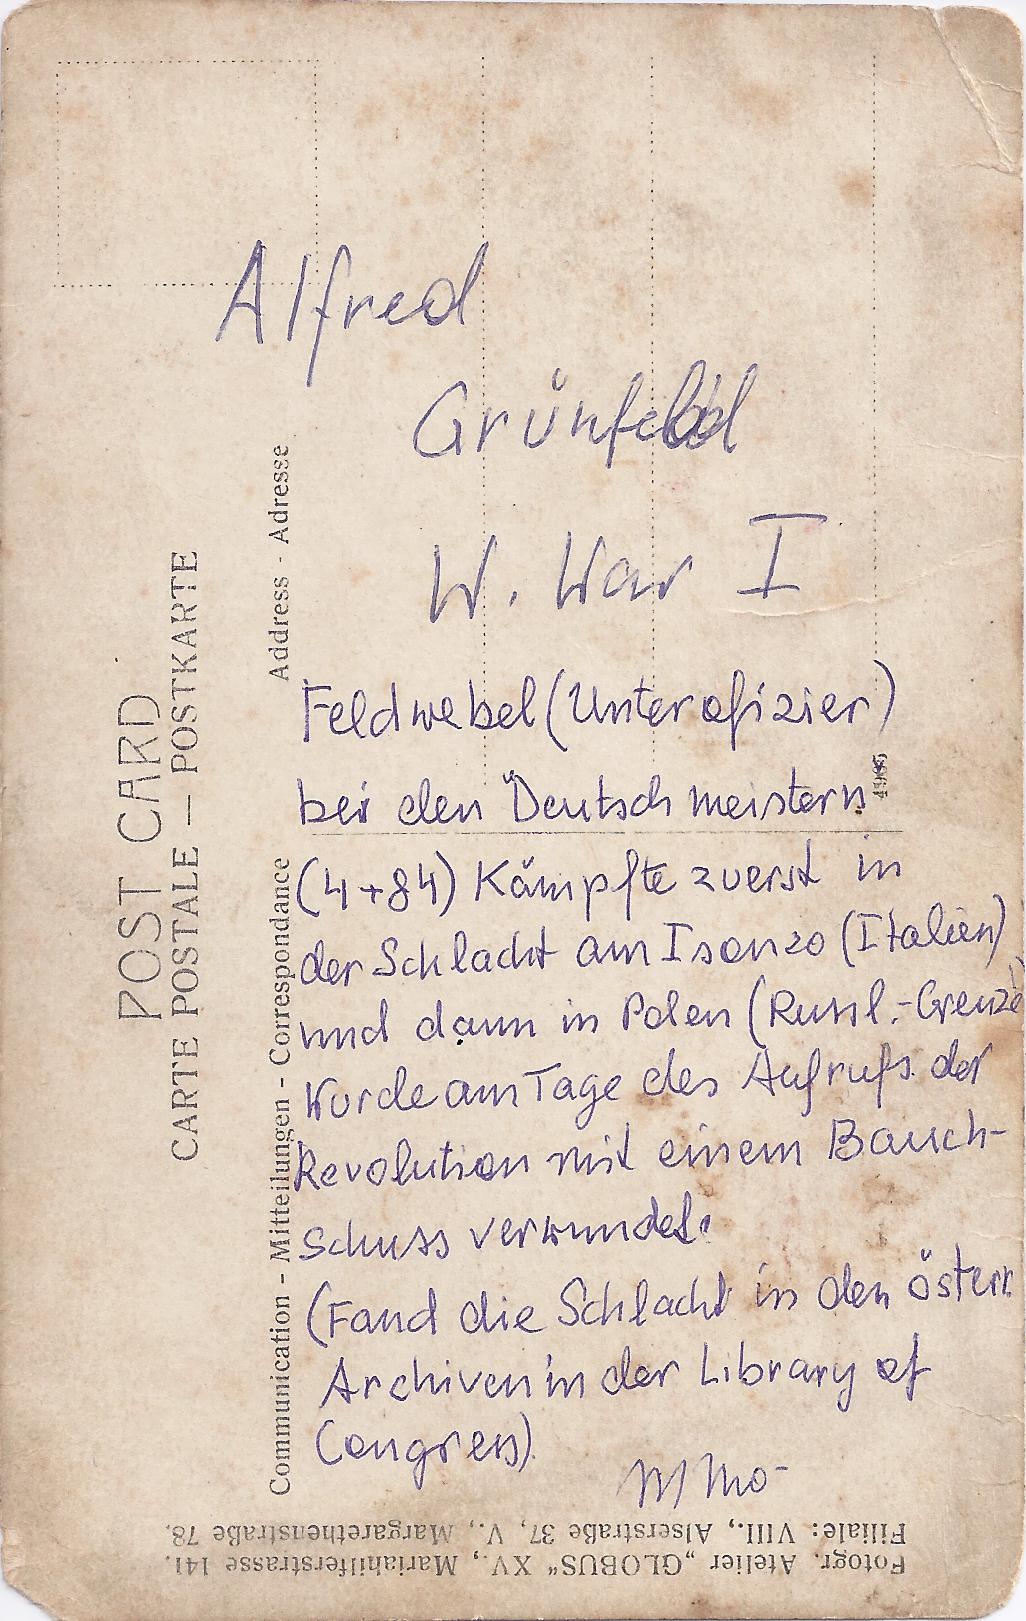 Alfred
Grünfeld
W. War I
Feldwebel (Unterofizier)
bei den Deutschmeistern
(4+84) Kämpfte zuerst in
der Schlacht am Isonzo (Italien)
und dann in Polen (Russl.-Grenze)
Wurde am Tage des Aufrufs der
Revolution mit einem Bauch-
schuss verwundet.
(Fand die Schlacht in den österr.
Archiven in der Library of
Congress).
POST CARD
CARTE POSTALE — POSTKARTE
Address - Adresse
Communication - Mitteilungen - Correspondance
Fotogr. Atelier „GLOBUS“ XV., Mariahilferstrasse 141.
Filiale: VIII., Alserstraße 37, V., Margarethenstraße 78.